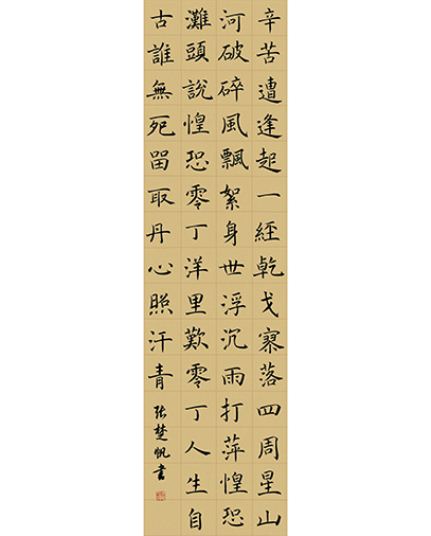 辛苦遭逢起一經乾戈寥落四周星山
河破碎風飄絮身世浮沉雨打萍惶恐
灘頭說惶恐零丁洋里歎零丁人生自
古誰無死留取丹心照汗青
张楚帆書